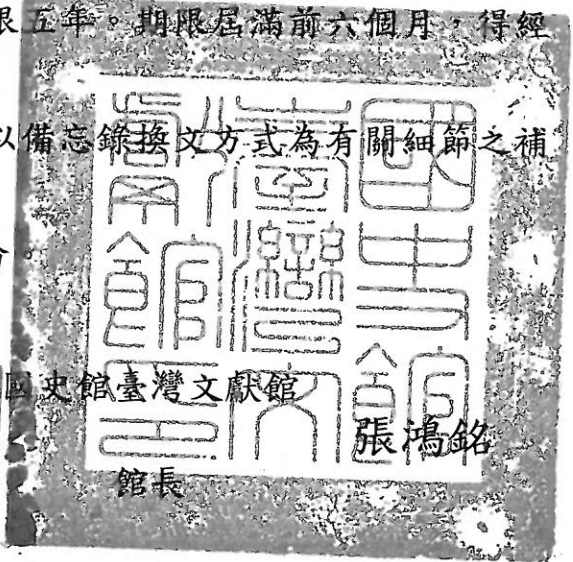 限五年。期限屆滿前六個月，得經
以備忘錄換文方式為有關細節之補
國史館臺灣文獻館
館長
張鴻銘
國史館
臺灣文
獻館印